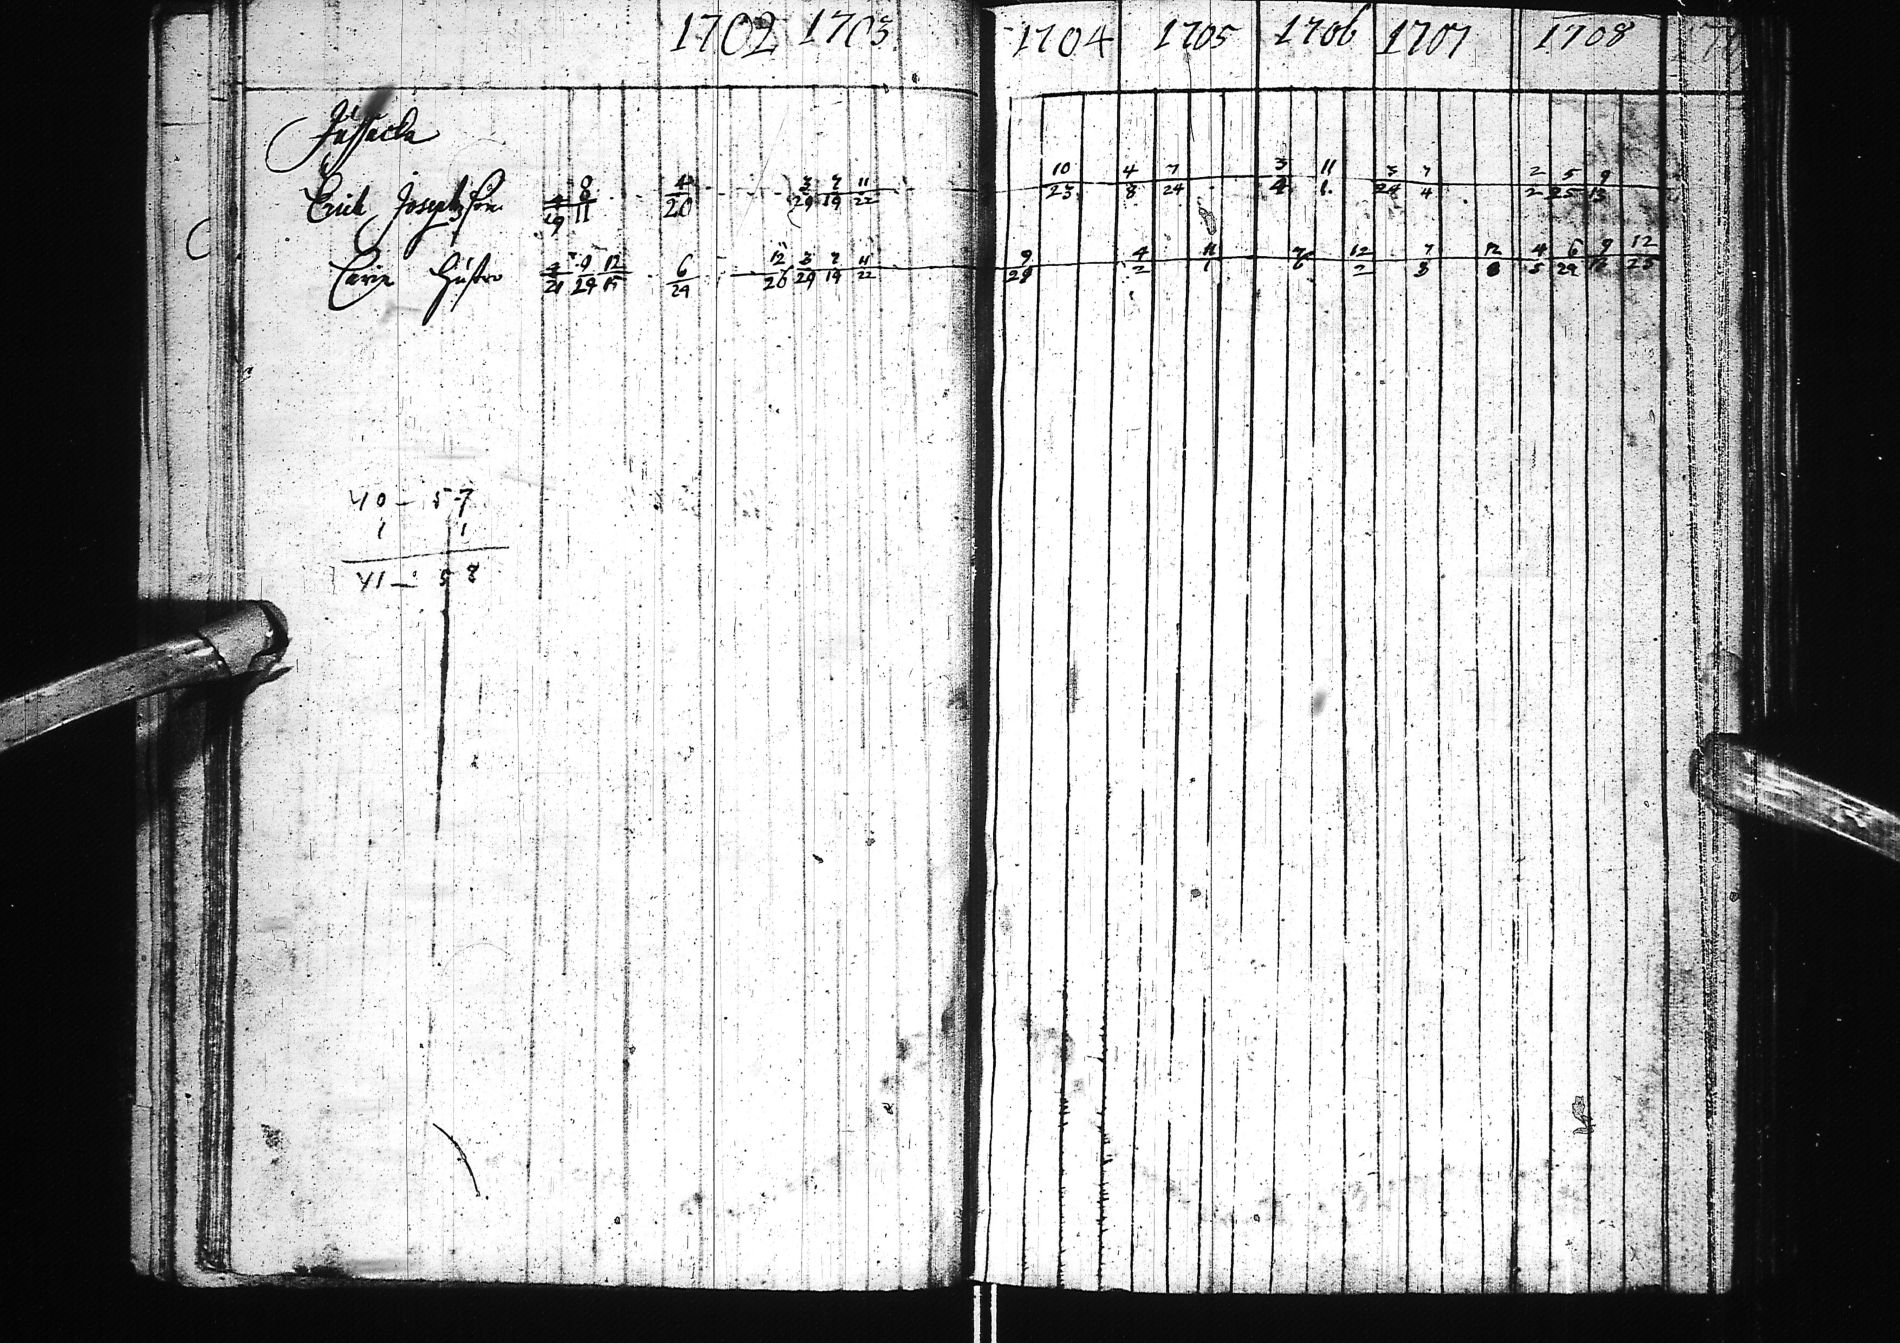 1702 1703 1704 1705 1706 1707 1708
Erich Josephsson 4/19 8/11 4/20 3/29 7/19 11/22 10/23 4/8 7/24 3/4 11/1 3/24 7/4 2/2 5/25 9/13
Carin Hustro 4/21 9/29 12/15 6/29 12/26 3/29 7/19 11/22 9/28 4/2 11/1 7/6 12/2 7/8 12/8 4/5 6/29 9/13 12/25
40 — 57
1 1
41 — 58